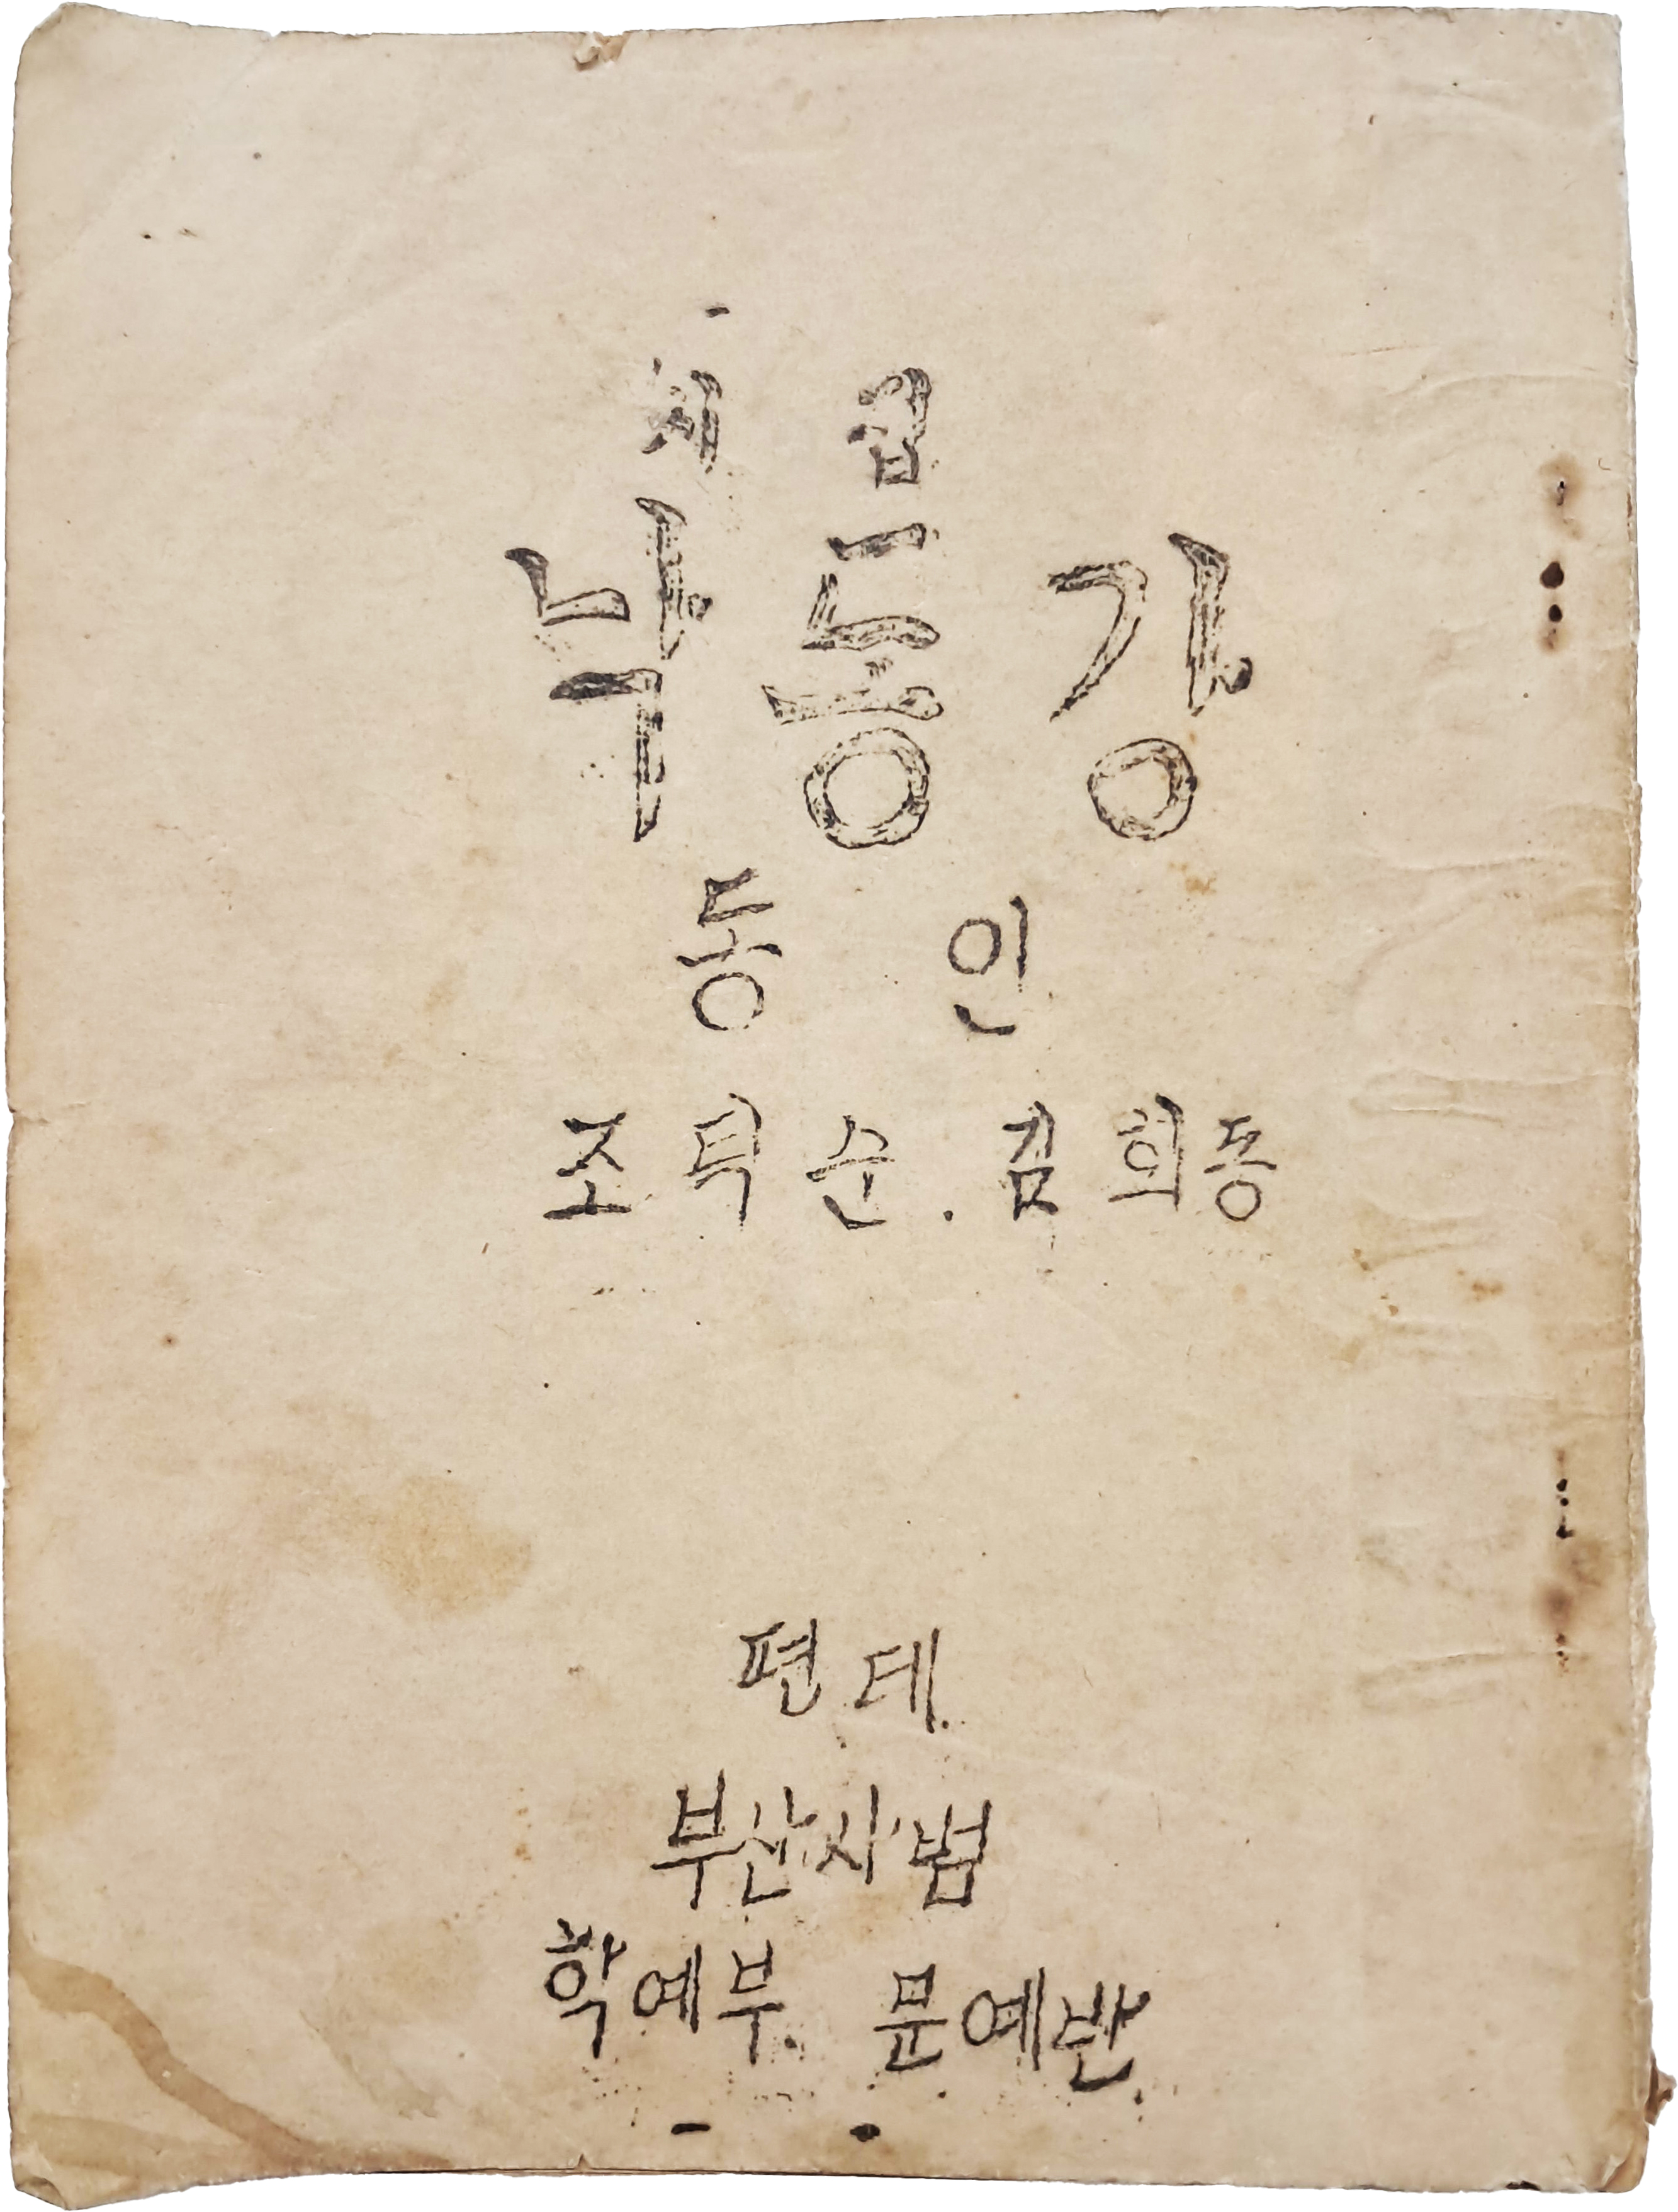 낙동강
동 인
조틱순. 김희동
편 데
부산사범
학예부. 문예반.